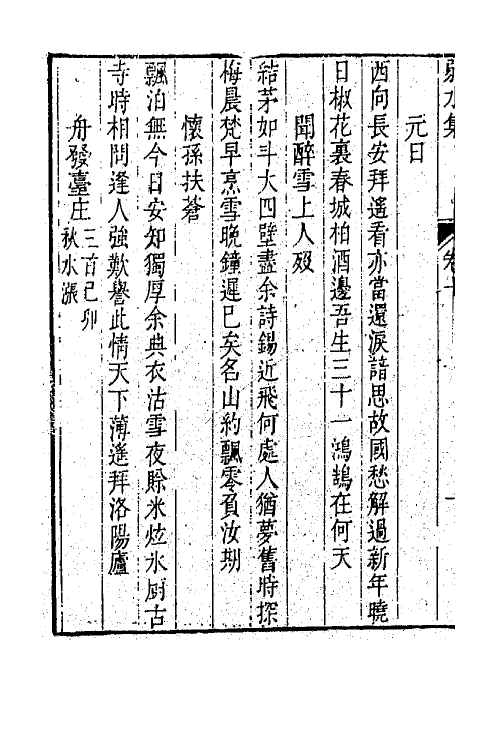 元日
西向長安拜遙看亦當還淚諳思故國愁解過新年曉
日椒花裏春城柏酒邊吾生三十一鴻鵠在何天
聞醉雪上人歿
結茅如斗大四壁盡余詩錫近飛何處人猶夢舊時探
梅晨梵早烹雪晚鐘遲已矣名山約飄零負汝期
懷孫扶蒼
飄泊無今日安知獨厚余典衣沽雪夜賒米炫氷厨古
寺時相問逢人強歎譽此情天下薄遙拜洛陽廬
舟發臺庄
三首己卯
秋水漲